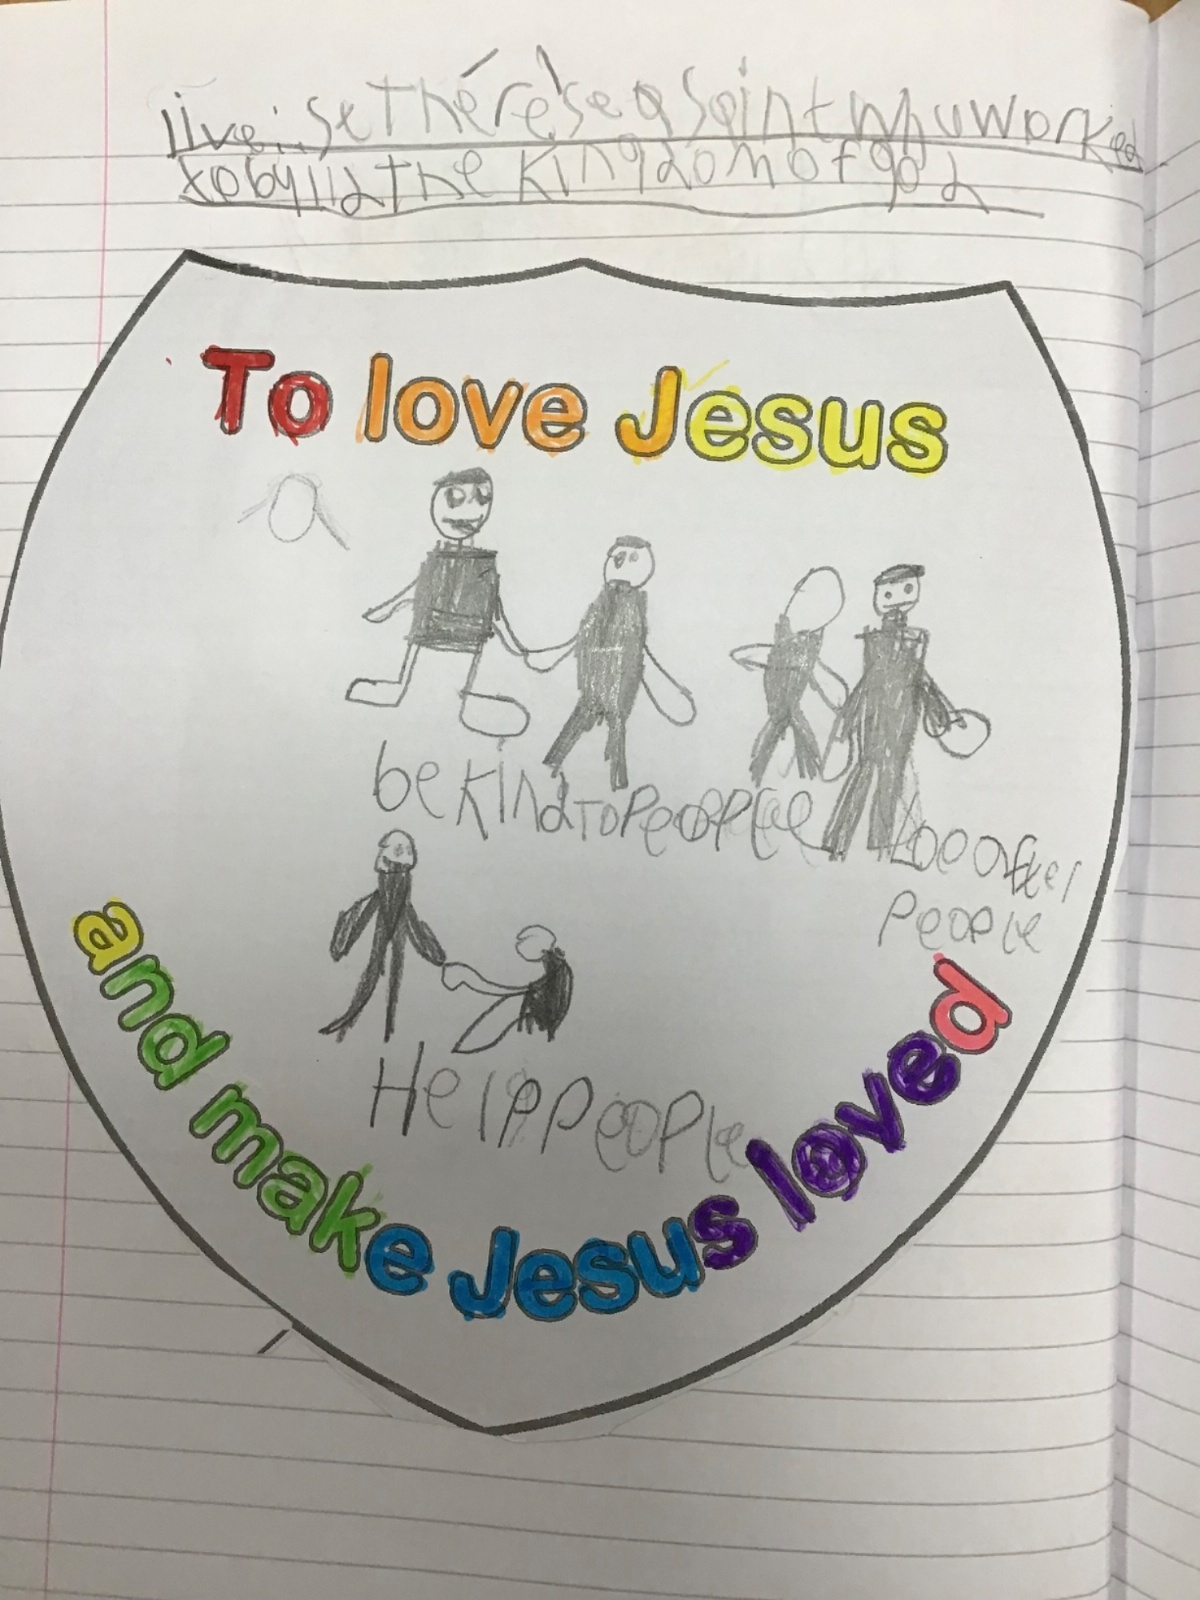 live:. St Thérèse a Saint whu worked
to byild the Kingdom of god
To love Jesus
a
be kind to people
loe after
people
Help people
and make Jesus loved